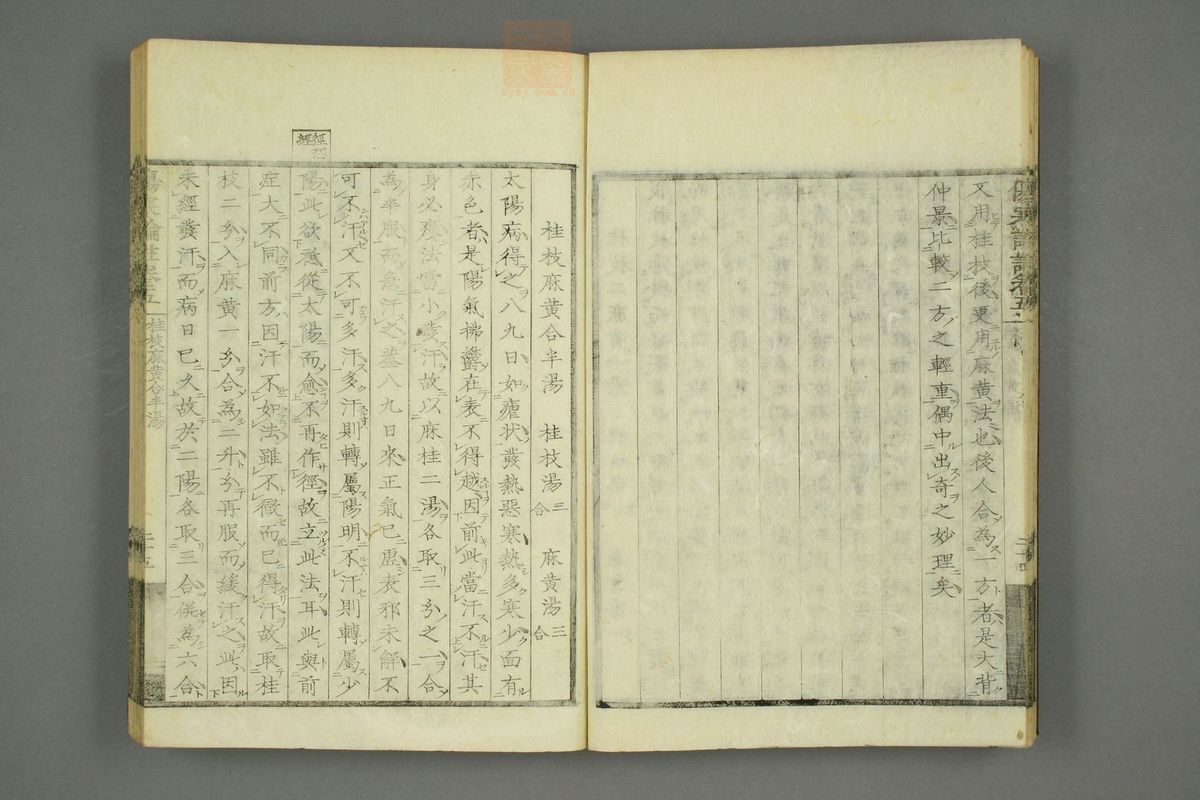 又用桂枝後更用麻黄法也後人合為一方者是大背
仲景比較二方之輕重偶中出奇之妙理矣
桂枝麻黄合半湯 桂枝湯三合 麻黄湯三合
太陽病得之八九日如瘧状發熱惡寒熱多寒少面有
赤色者是陽氣拂鬱在表不得越因前此當汗不汗其
身必痒法當小發汗故以麻桂二湯各取三分之一合
為半服而急汗之蓋八九日來正氣已虚表邪未解不
可不汗又不可多汗多汗則轉屬陽明不汗則轉屬少
陽此欲其從太陽而愈不再作徑故立此法耳此與前
症大不同前方因汗不如法雖不徹而已得汗故取桂
枝二分入麻黄一分合為二升分再服而緩汗之此因
未經發汗而病日已久故於二陽各取三合併為六合
傷寒論註卷五
桂枝麻黄合半湯
zysj.com.cn